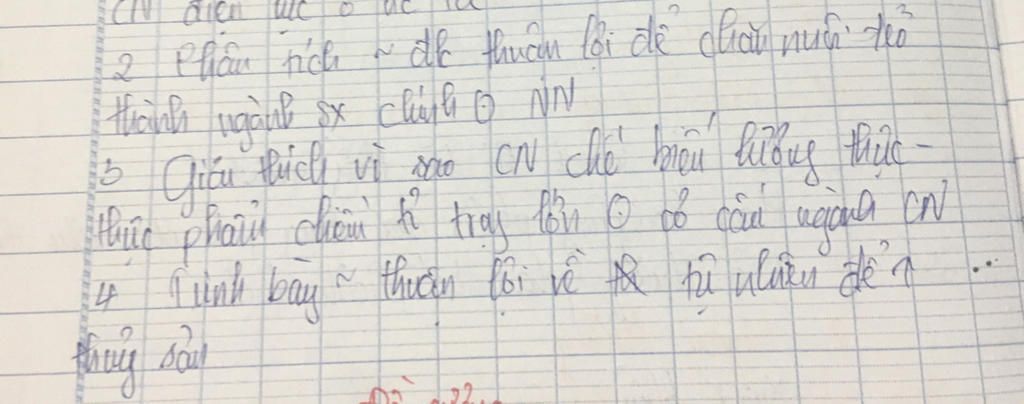 CN điện lực ở
2 Phân tích ~ đk thuận lợi để chăn nuôi trở
thành ngành sx chính ⊙ NN
3 Giải thích vì sao CN chế biến lương thực -
thực phẩm chiếm tỉ trọng lớn ⊙ cơ cấu ngành CN
4 Trình bày ~ thuận lợi về tự nhiên để ↑ ...
thuỷ sản